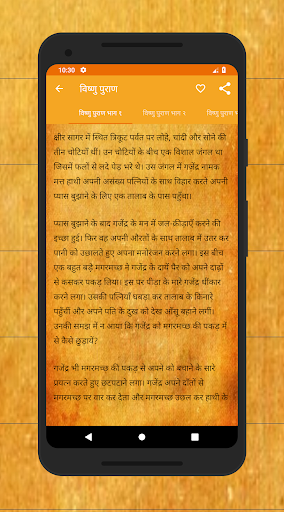 10:30
विष्णु पुराण
विष्णु पुराण भाग १ विष्णु पुराण भाग २ विष्णु पुराण
क्षीर सागर में स्थित त्रिकूट पर्वत पर लोहे, चांदी और सोने की
तीन चोटियाँ थीं। उन चोटियों के बीच एक विशाल जंगल था
जिसमें फलों से लदे पेड़ भरे थे। उस जंगल में गजेंद्र नामक
मत्त हाथी अपनी असंख्य पत्नियों के साथ विहार करते अपनी
प्यास बुझाने के लिए एक तालाब के पास पहुँचा।
प्यास बुझाने के बाद गजेंद्र के मन में जल-क्रीड़ाएँ करने की
इच्छा हुई। फिर वह अपनी औरतों के साथ तालाब में उतर कर
पानी को उछालते हुए अपना मनोरंजन करने लगा। इस बीच
एक बहुत बड़े मगरमच्छ ने गजेंद्र के दायें पैर को अपने दाढ़ों
से कसकर पकड़ लिया। इस पर पीड़ा के मारे गजेंद्र धींकार
करने लगा। उसकी पत्नियाँ घबड़ा कर तालाब के किनारे
पहुँचीं और अपने पति के दुख को देख आँसू बहाने लगीं।
उनकी समझ में न आया कि गजेंद्र को मगरमच्छ की पकड़ में
से कैसे छुड़ायें?
गजेंद्र भी मगरमच्छ की पकड़ से अपने को बचाने के सारे
प्रयत्न करते हुए छटपटाने लगा। गजेंद्र अपने दाँतों से
मगरमच्छ पर वार कर देता और मगरमच्छ उछल कर हाथी के